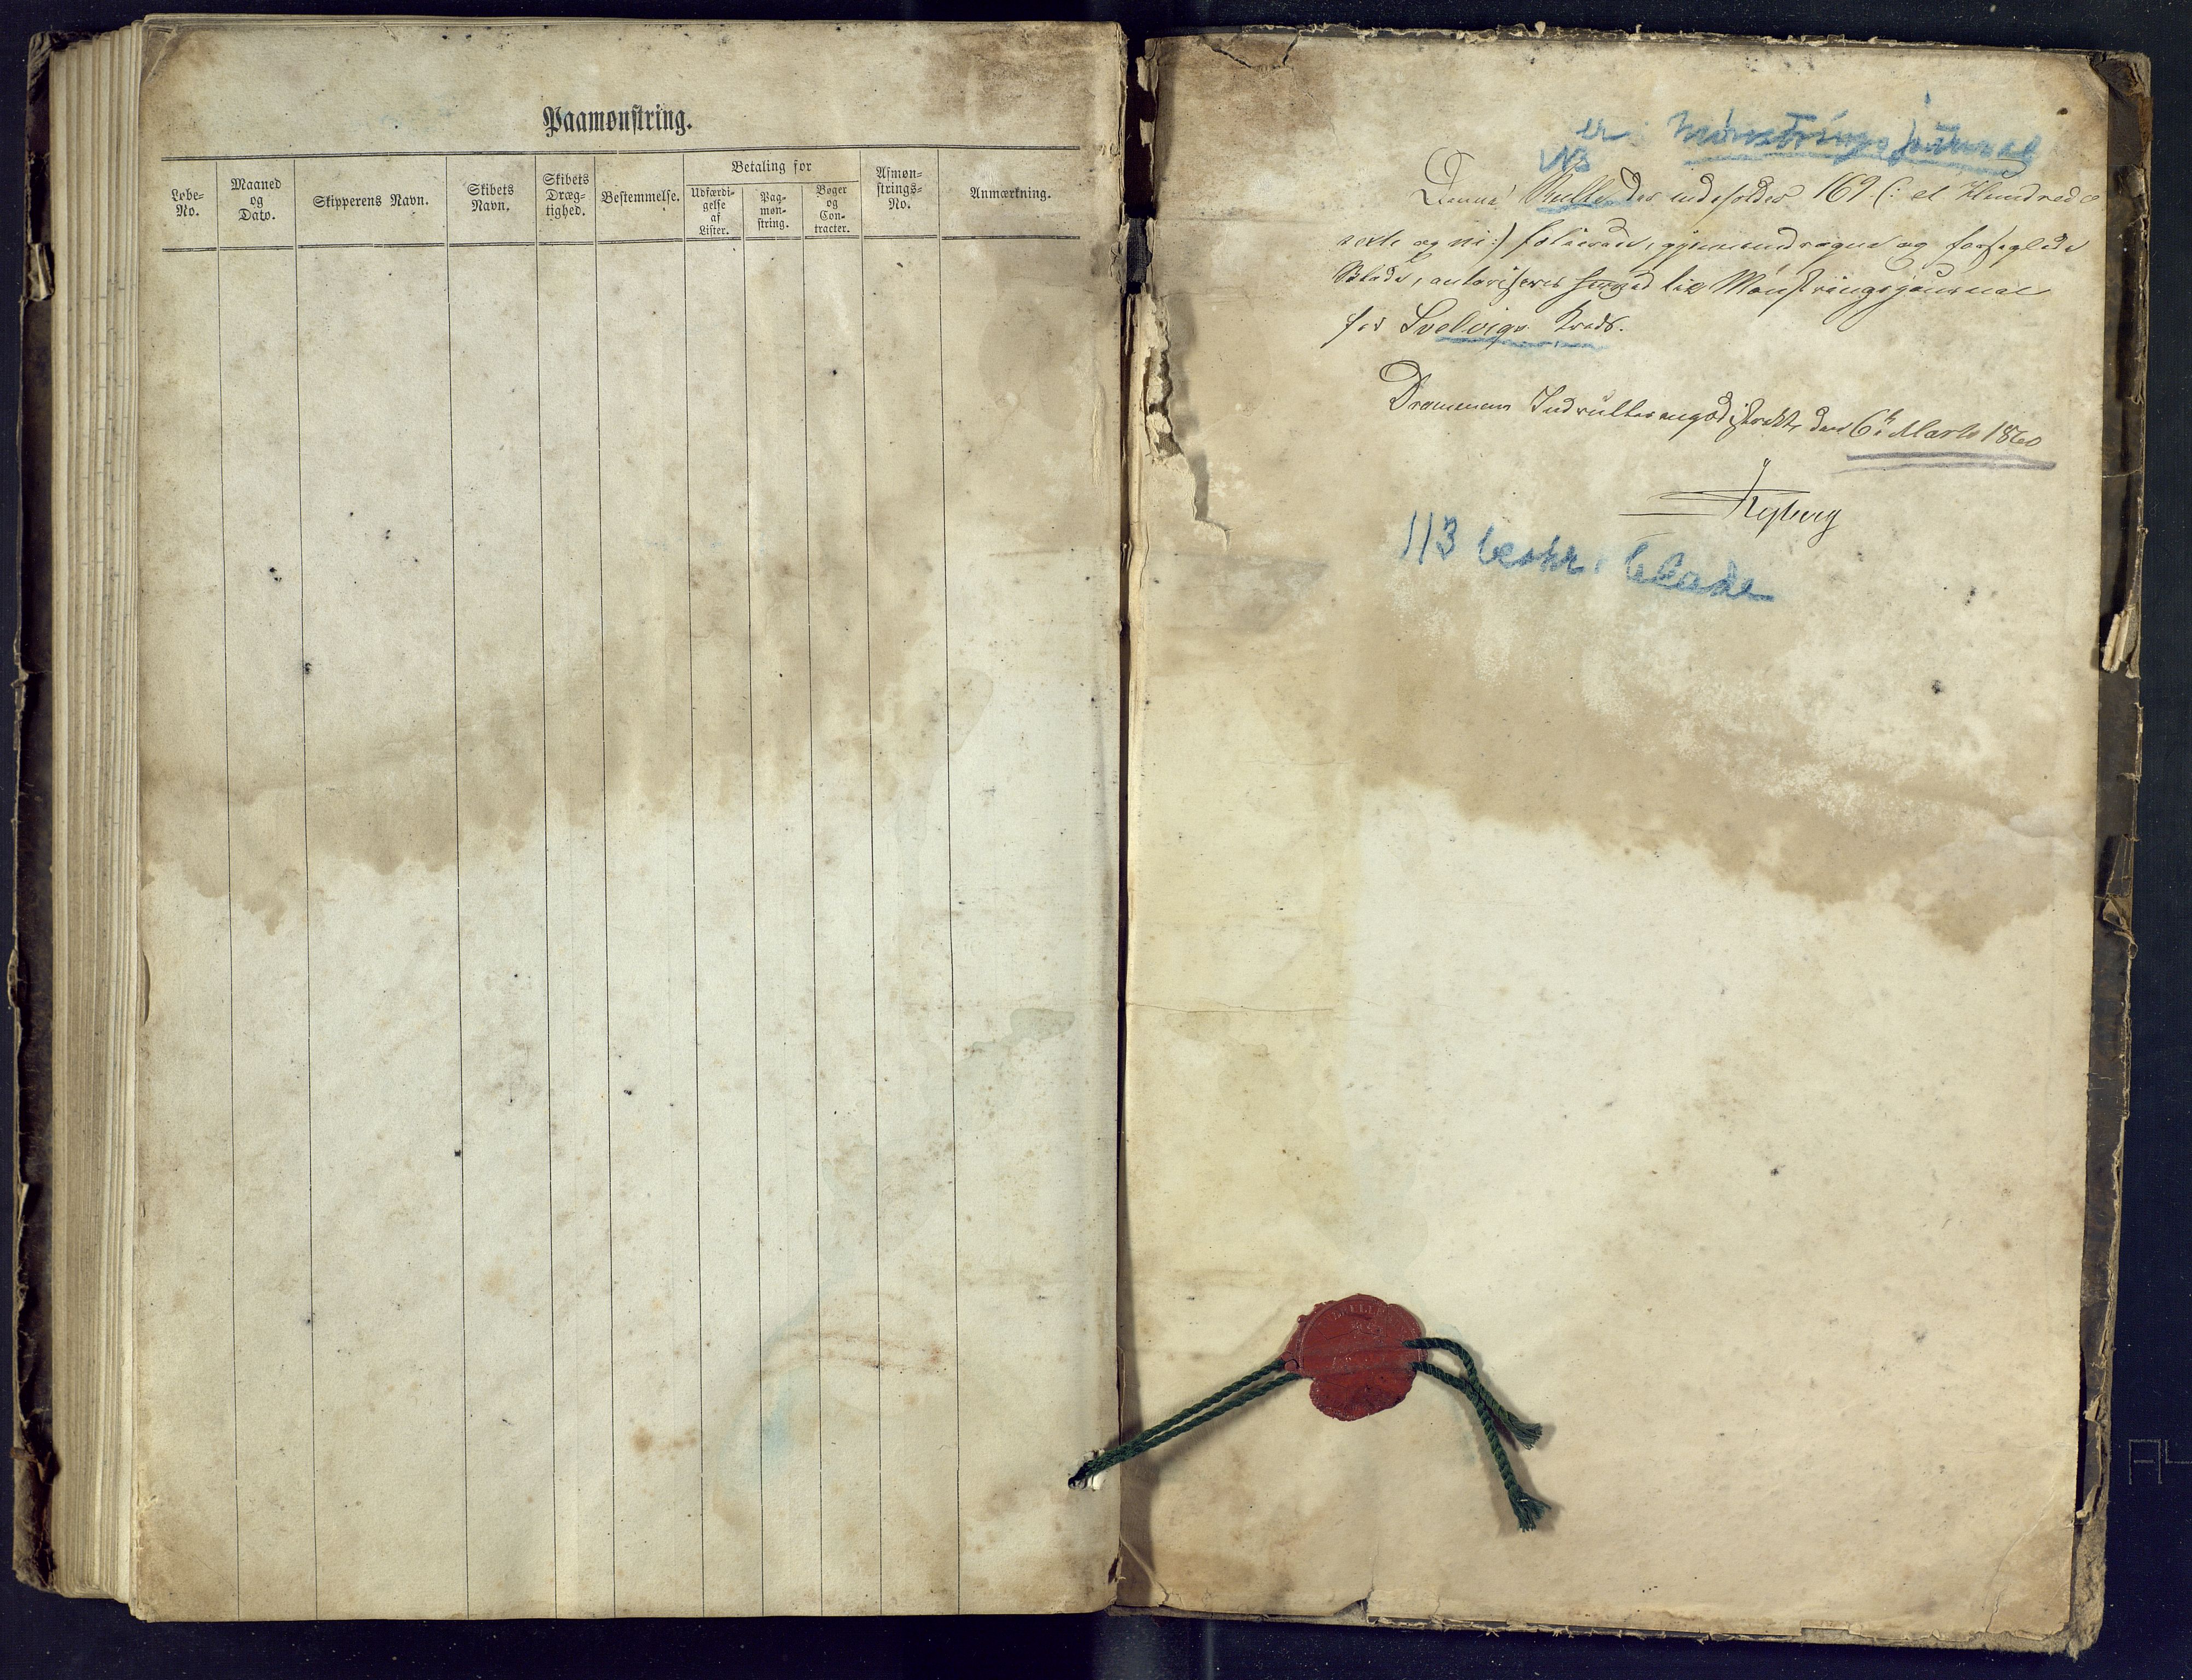 Paamønstring.
Løbe-
No.
Maaned
og
Dato.
Skipperens Navn.
Skibets
Navn.
Skibets
Dræg-
tighed.
Bestemmelse.
Betaling for
Udfærdi-
gelse
af
Lister.
Paa-
møn-
string.
Bøger
og
Con-
tracter.
Afmøn-
strings-
No.
Anmærkning.
er Mønstringsjournal
NB
Denne Rulle der indeholder 169 (: et Hundrede
sexti og ni :) folierede, gjennemdragne og forseglede
Blade, autoriseres herved til Mønstringsjournal
for Svelvigs Kreds.
Drammens Indrulleringsdistrikt den 6te Marts 1860
113 beskr. blade